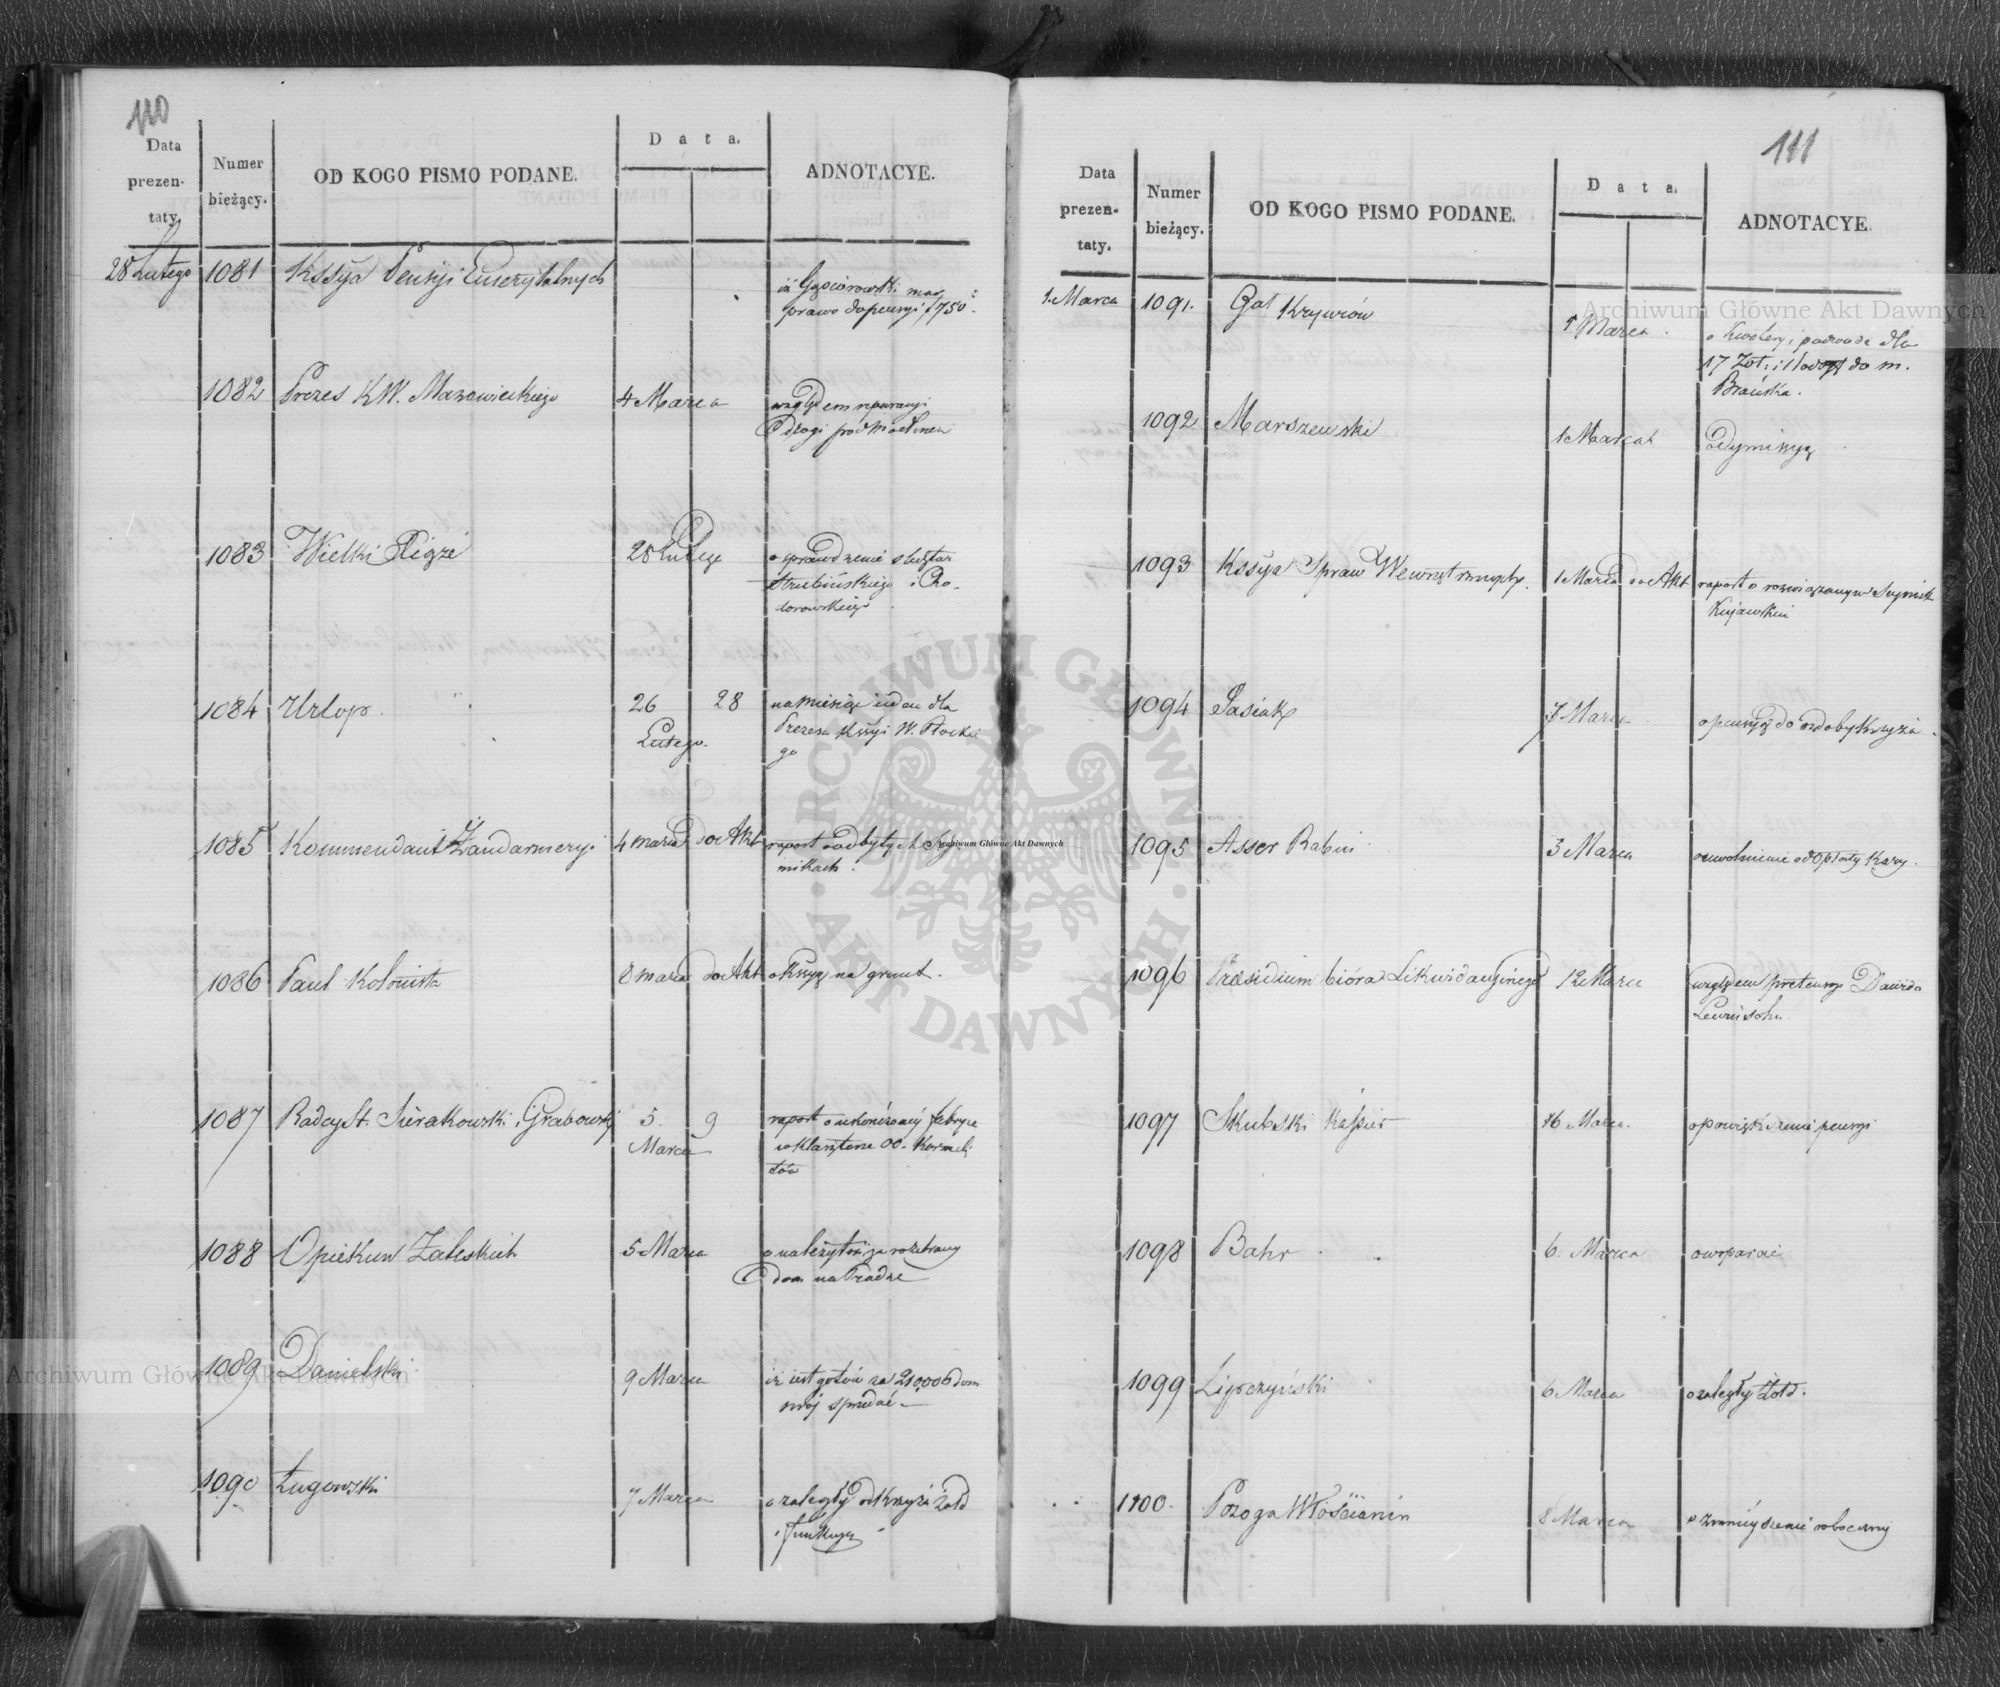 110
Data
prezen-
taty.
Numer
bieżący.
OD KOGO PISMO PODANE.
Data.
ADNOTACYE.
28 Lutego 1081 Kssya Pensyi Emerytalnych
iż Gąsiorowski ma
prawo do pensyi f 750.
1082 Prezes K.W. Mazowieckiego 4 Marca względem reparacyi
drogi pod Modlinem
1083 Wielki Xiąże 28 Lutego o sprawdzenie
i Cho-
torowskiego
1084 Urlop. 26 28 na miesiąc ieden dla
Lutego. Prezesa Kssyi W. Płockie
go
1085 Kommendant Żandarmeryi 4 marca do Akt raport o odbytych Sey
mikach.
1086 Paul Kolonista 8 marca do Akt na grunt.
1087 Radcy St. Sierakowski i Grabowski 5. 9 raport o fabryce
Marca w klasztorze OO. Karmeli
tów
1088 Opiekun Zaleskich 5 Marca o należytość za rozebrany
dom na Pradze
1089 Danielski 9 Marca iż iest gotów za 210,000 dom
swój sprzedać.
1090 Ługowski 7 Marca o zaległy od Krzyża żołd
111
Data
prezen-
taty.
Numer
bieżący.
OD KOGO PISMO PODANE.
Data.
ADNOTACYE.
1. Marca 1091. Gał Krywców
Marca o kwatery i podwode dla
17 Żoł. i do m.
Brańska.
1092 Marszewski 1 Marca o dymisyą
1093 Kssya Spraw Wewnętrznych. 1 Marca do Akt raport o rozwiązanym Seymiku
Kujawskim
1094 Sasiak 7 Marca o pensyą do ozdoby Krzyża.
1095 Asser Rabin 3 Marca o uwolnienie od opłaty Kary.
1096 Præsidium bióra Likwidacyinego 12 Marca względem pretensyi Dawida
Lewinsohn.
1097 Skulski Kassier 16 Marca. o powiększenie pensyi
1098 Bahr 6. Marca o wsparcie
1099 Lipczyński 6 Marca o zaległy żołd.
1100. Pozoga Włościanin 8 Marca o zmnieyszenie robocizny
Archiwum Główne Akt Dawnych
Archiwum Główne Akt Dawnych
Archiwum Główne Akt Dawnych
ARCHIWUM GŁÓWNE
AKT DAWNYCH